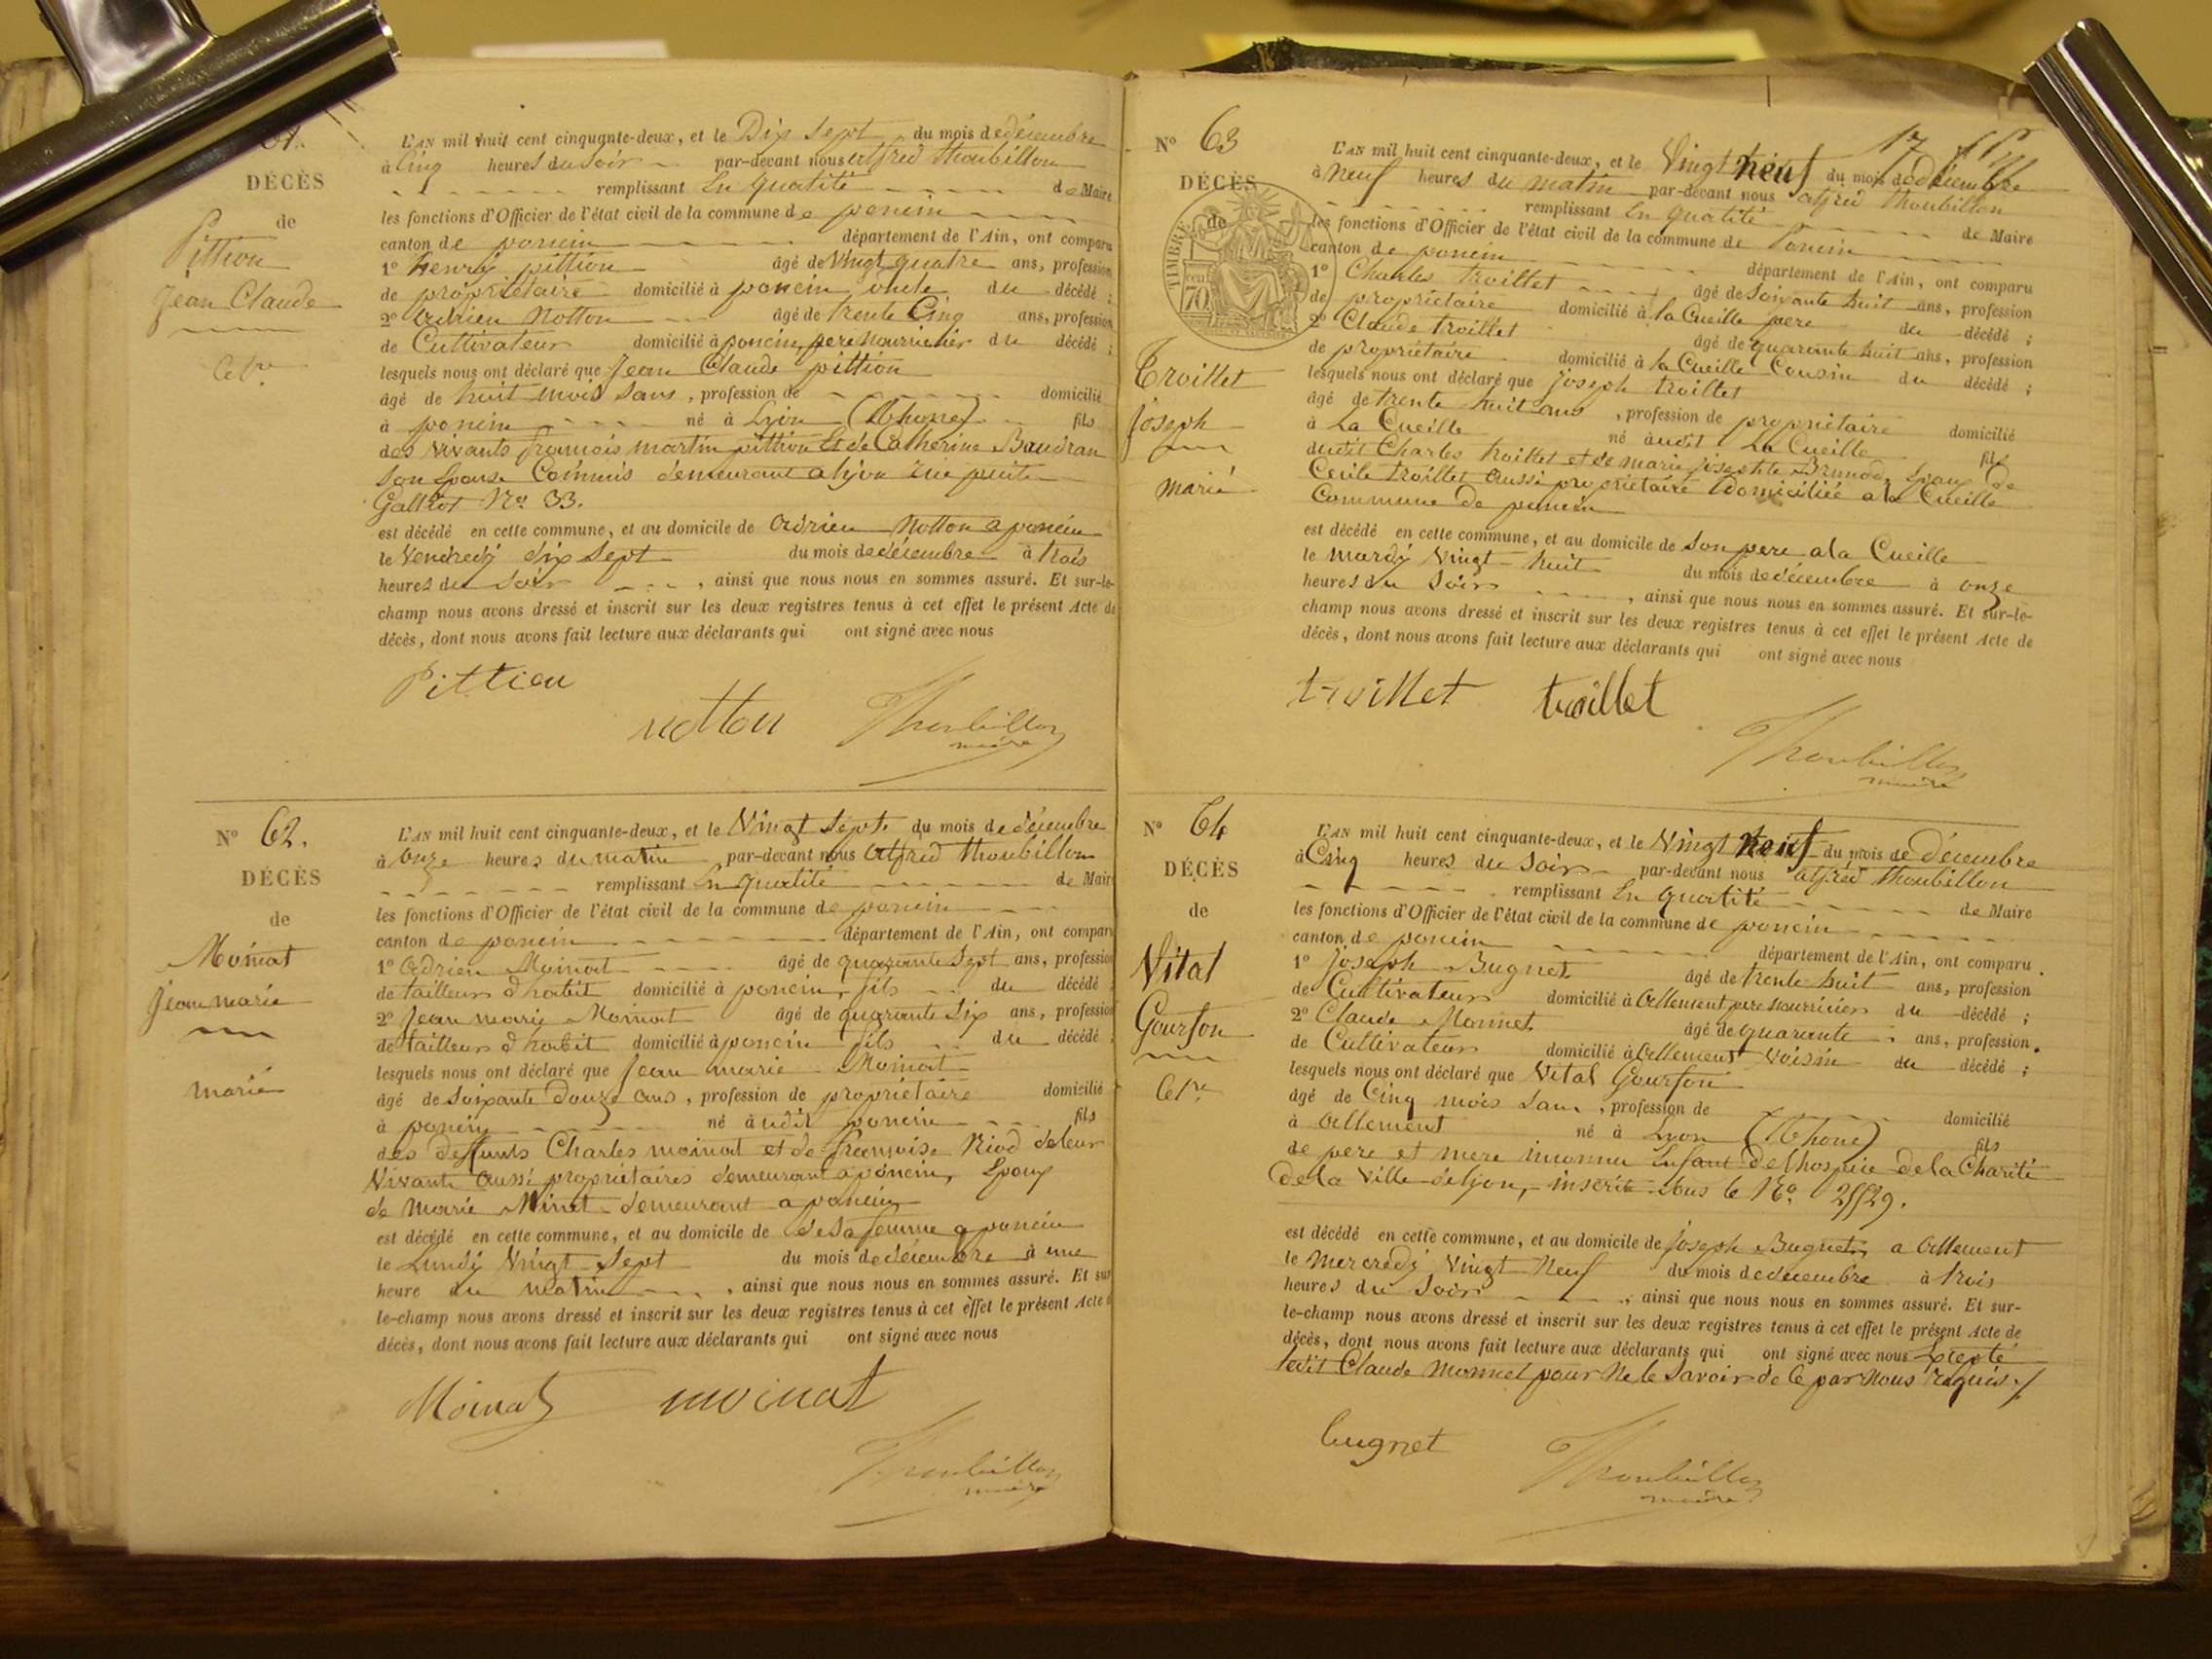 61.
DÉCÈS
de
Pittion
Jean Claude
Cel.re
L'AN mil huit cent cinquante-deux, et le Dix Sept du mois de décembre
à Cinq heures du Soir par-devant nous alfred thoubillon
remplissant En qualité de Maire
les fonctions d'Officier de l'état civil de la commune de poncin
canton de poncin département de l'Ain, ont comparu
1° henry pittion âgé de Vingt quatre ans, profession
de propriétaire domicilié à poncin oncle du décédé ;
2° adrien Notton âgé de trente Cinq ans, profession
de Cultivateur domicilié à poncin, pere nourricier du décédé ;
lesquels nous ont déclaré que Jean Claude pittion
âgé de huit mois sans , profession de domicilié
à poncin né à Lyon (Rhone) fils
des vivants françois martin pittion et de Catherine Baudran
son Epouse Commis demeurant a lyon rue puits
Gaillot No. 33.
est décédé en cette commune, et au domicile de adrien Notton a poncin
le Vendredy dix Sept du mois de décembre à trois
heures du Soir , ainsi que nous nous en sommes assuré. Et sur-le-
champ nous avons dressé et inscrit sur les deux registres tenus à cet effet le présent Acte de
décès, dont nous avons fait lecture aux déclarants qui ont signé avec nous
Pittion
notton Thoubillon
maire
N° 62.
DÉCÈS
de
Moinat
Jean marie
marié
L'AN mil huit cent cinquante-deux, et le Vingt Sept du mois de décembre
à Onze heures du matin par-devant nous alfred thoubillon
remplissant En qualité de Maire
les fonctions d'Officier de l'état civil de la commune de poncin
canton de poncin département de l'Ain, ont comparu
1° adrien Moinat âgé de quarante Sept ans, profession
de tailleur d'habit domicilié à poncin, fils du décédé
2° Jean marie Moinat âgé de quarante Six ans, profession
de tailleur d'habit domicilié à poncin fils du décédé ;
lesquels nous ont déclaré que Jean marie Moinat
âgé de Soixante Douze ans , profession de propriétaire domicilié
à poncin né à udit poncin fils
des deffunts Charles moinat et de françoise Riod de leur
Vivant aussi propriétaires demeurant a poncin, Epoux
de Marie Minet demeurant a poncin
est décédé en cette commune, et au domicile de de sa femme a poncin
le Lundy Vingt Sept du mois de décembre à une
heure du matin , ainsi que nous nous en sommes assuré. Et sur
le-champ nous avons dressé et inscrit sur les deux registres tenus à cet effet le présent Acte d
décès, dont nous avons fait lecture aux déclarants qui ont signé avec nous
Moinat moinat
Thoubillon
maire
N° 63
DÉCÈS
de
TIMBRE
70
Troillet
joseph
marié
17
L'AN mil huit cent cinquante-deux, et le Vingt neuf du mois de décembre
à neuf heures du matin par-devant nous alfred thoubillon
remplissant En qualité de Maire
les fonctions d'Officier de l'état civil de la commune de Poncin
canton de poncin département de l'Ain, ont comparu
1° Charles troillet âgé de Soixante huit ans, profession
de propriétaire domicilié à la Cueille pere du décédé ;
2° Claude troillet âgé de quarante huit ans, profession
de propriétaire domicilié à la Cueille Cousin du décédé ;
lesquels nous ont déclaré que joseph troillet
âgé de trente huit ans , profession de propriétaire domicilié
à La Cueille né audit La Cueille fils
dudit Charles troillet et de marie josephte Brunod, Epoux de
Cecile troillet aussi propriétaire Domiciliée a la Cueille
Commune de poncin
est décédé en cette commune, et au domicile de Son pere a la Cueille
le mardy Vingt huit du mois de décembre à onze
heures du Soir , ainsi que nous nous en sommes assuré. Et sur-le-
champ nous avons dressé et inscrit sur les deux registres tenus à cet effet le présent Acte de
décès, dont nous avons fait lecture aux déclarants qui ont signé avec nous
troillet troillet
Thoubillon
maire
N° 64
DÉCÈS
de
Vital
Gourfon
Cel.re
L'AN mil huit cent cinquante-deux, et le Vingt neuf du mois de décembre
à Cinq heures du Soir par-devant nous alfred thoubillon
remplissant En qualité de Maire
les fonctions d'Officier de l'état civil de la commune de poncin
canton de poncin département de l'Ain, ont comparu
1° Joseph Bugnet âgé de trente huit ans, profession
de Cultivateur domicilié à allement pere nourricier du décédé ;
2° Claude Monnet âgé de quarante ans, profession
de Cultivateur domicilié à allement Voisin du décédé ;
lesquels nous ont déclaré que Vital Gourfon
âgé de Cinq mois Sans , profession de domicilié
à allement né à Lyon (Rhone) fils
de pere et mere inconnu Enfant De lhospice de la Charité
de la Ville de lyon, inscrit Sous le No. 25529.
est décédé en cette commune, et au domicile de joseph Bugnet, a allement
le mercredy Vingt Neuf du mois de décembre à trois
heures du Soir , ainsi que nous nous en sommes assuré. Et sur-
le-champ nous avons dressé et inscrit sur les deux registres tenus à cet effet le présent Acte de
décès, dont nous avons fait lecture aux déclarants qui ont signé avec nous Excepté
ledit Claude Monnet pour Ne le Savoir de Ce par Nous requis.
bugnet Thoubillon
maire